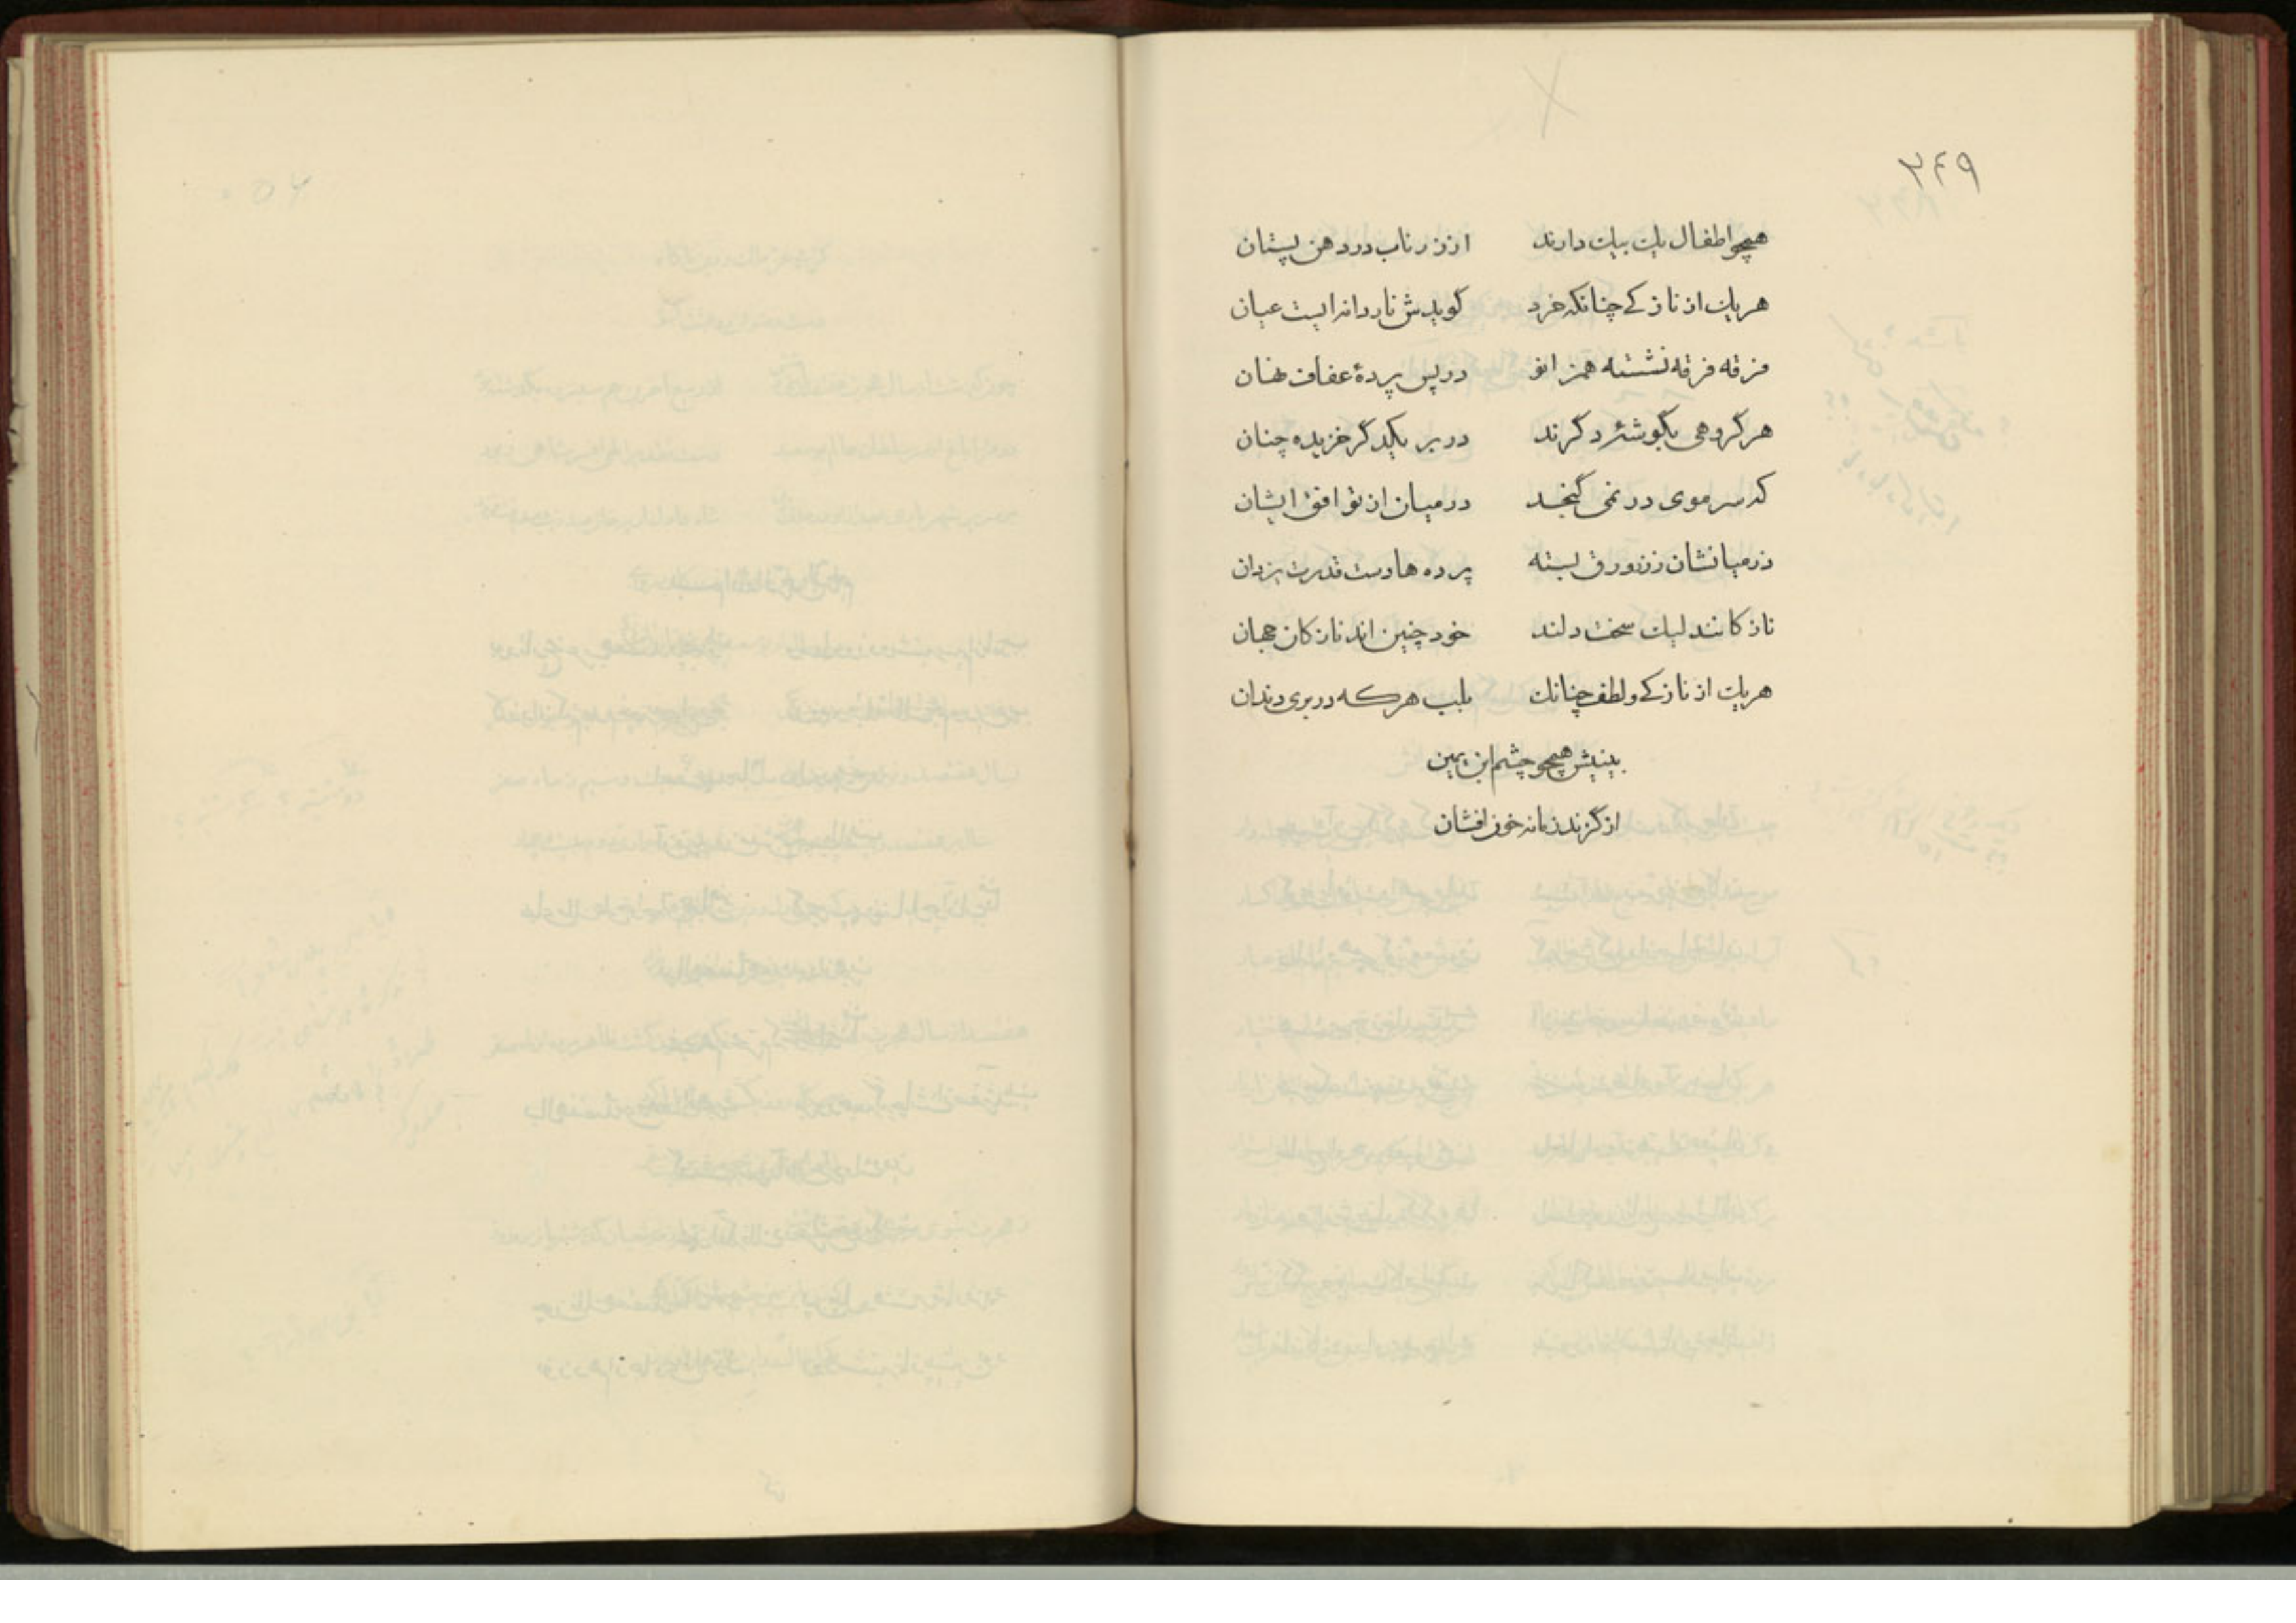 ۲۴۹
همچو اطفال یک بیک دارند از زر ناب در دهن پستان
هر یک از نازکی چنانکه خرد گویدش ناردانه ایست عیان
فرقه فرقه نشسته همزانو در پس پردهٔ عفاف نهان
هر گروهی بگوشهٔ گردند در بر یکدگر خزیده چنان
که سر موی در نمی گنجد در میان از توافق ایشان
در میانشان ز زر ورق بسته پرده ها دست قدرت یزدان
نازکانند لیک سخت دلند خود چنین اند نازکان جهان
هر یک از نازکی و لطف چنانک بلب هر که در بری دندان
بینیش همچو چشم ابن یمین
از گزند زمانه خون افشان